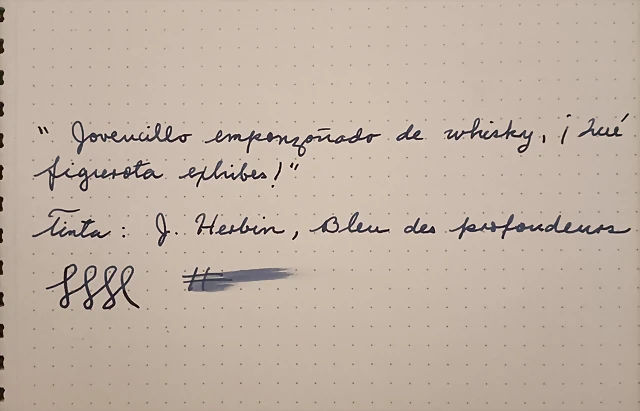 " Jovencillo emponzoñado de whisky, ¡ Qué
figurota exhibes! "
Tinta : J. Herbin, Bleu des profondeurs